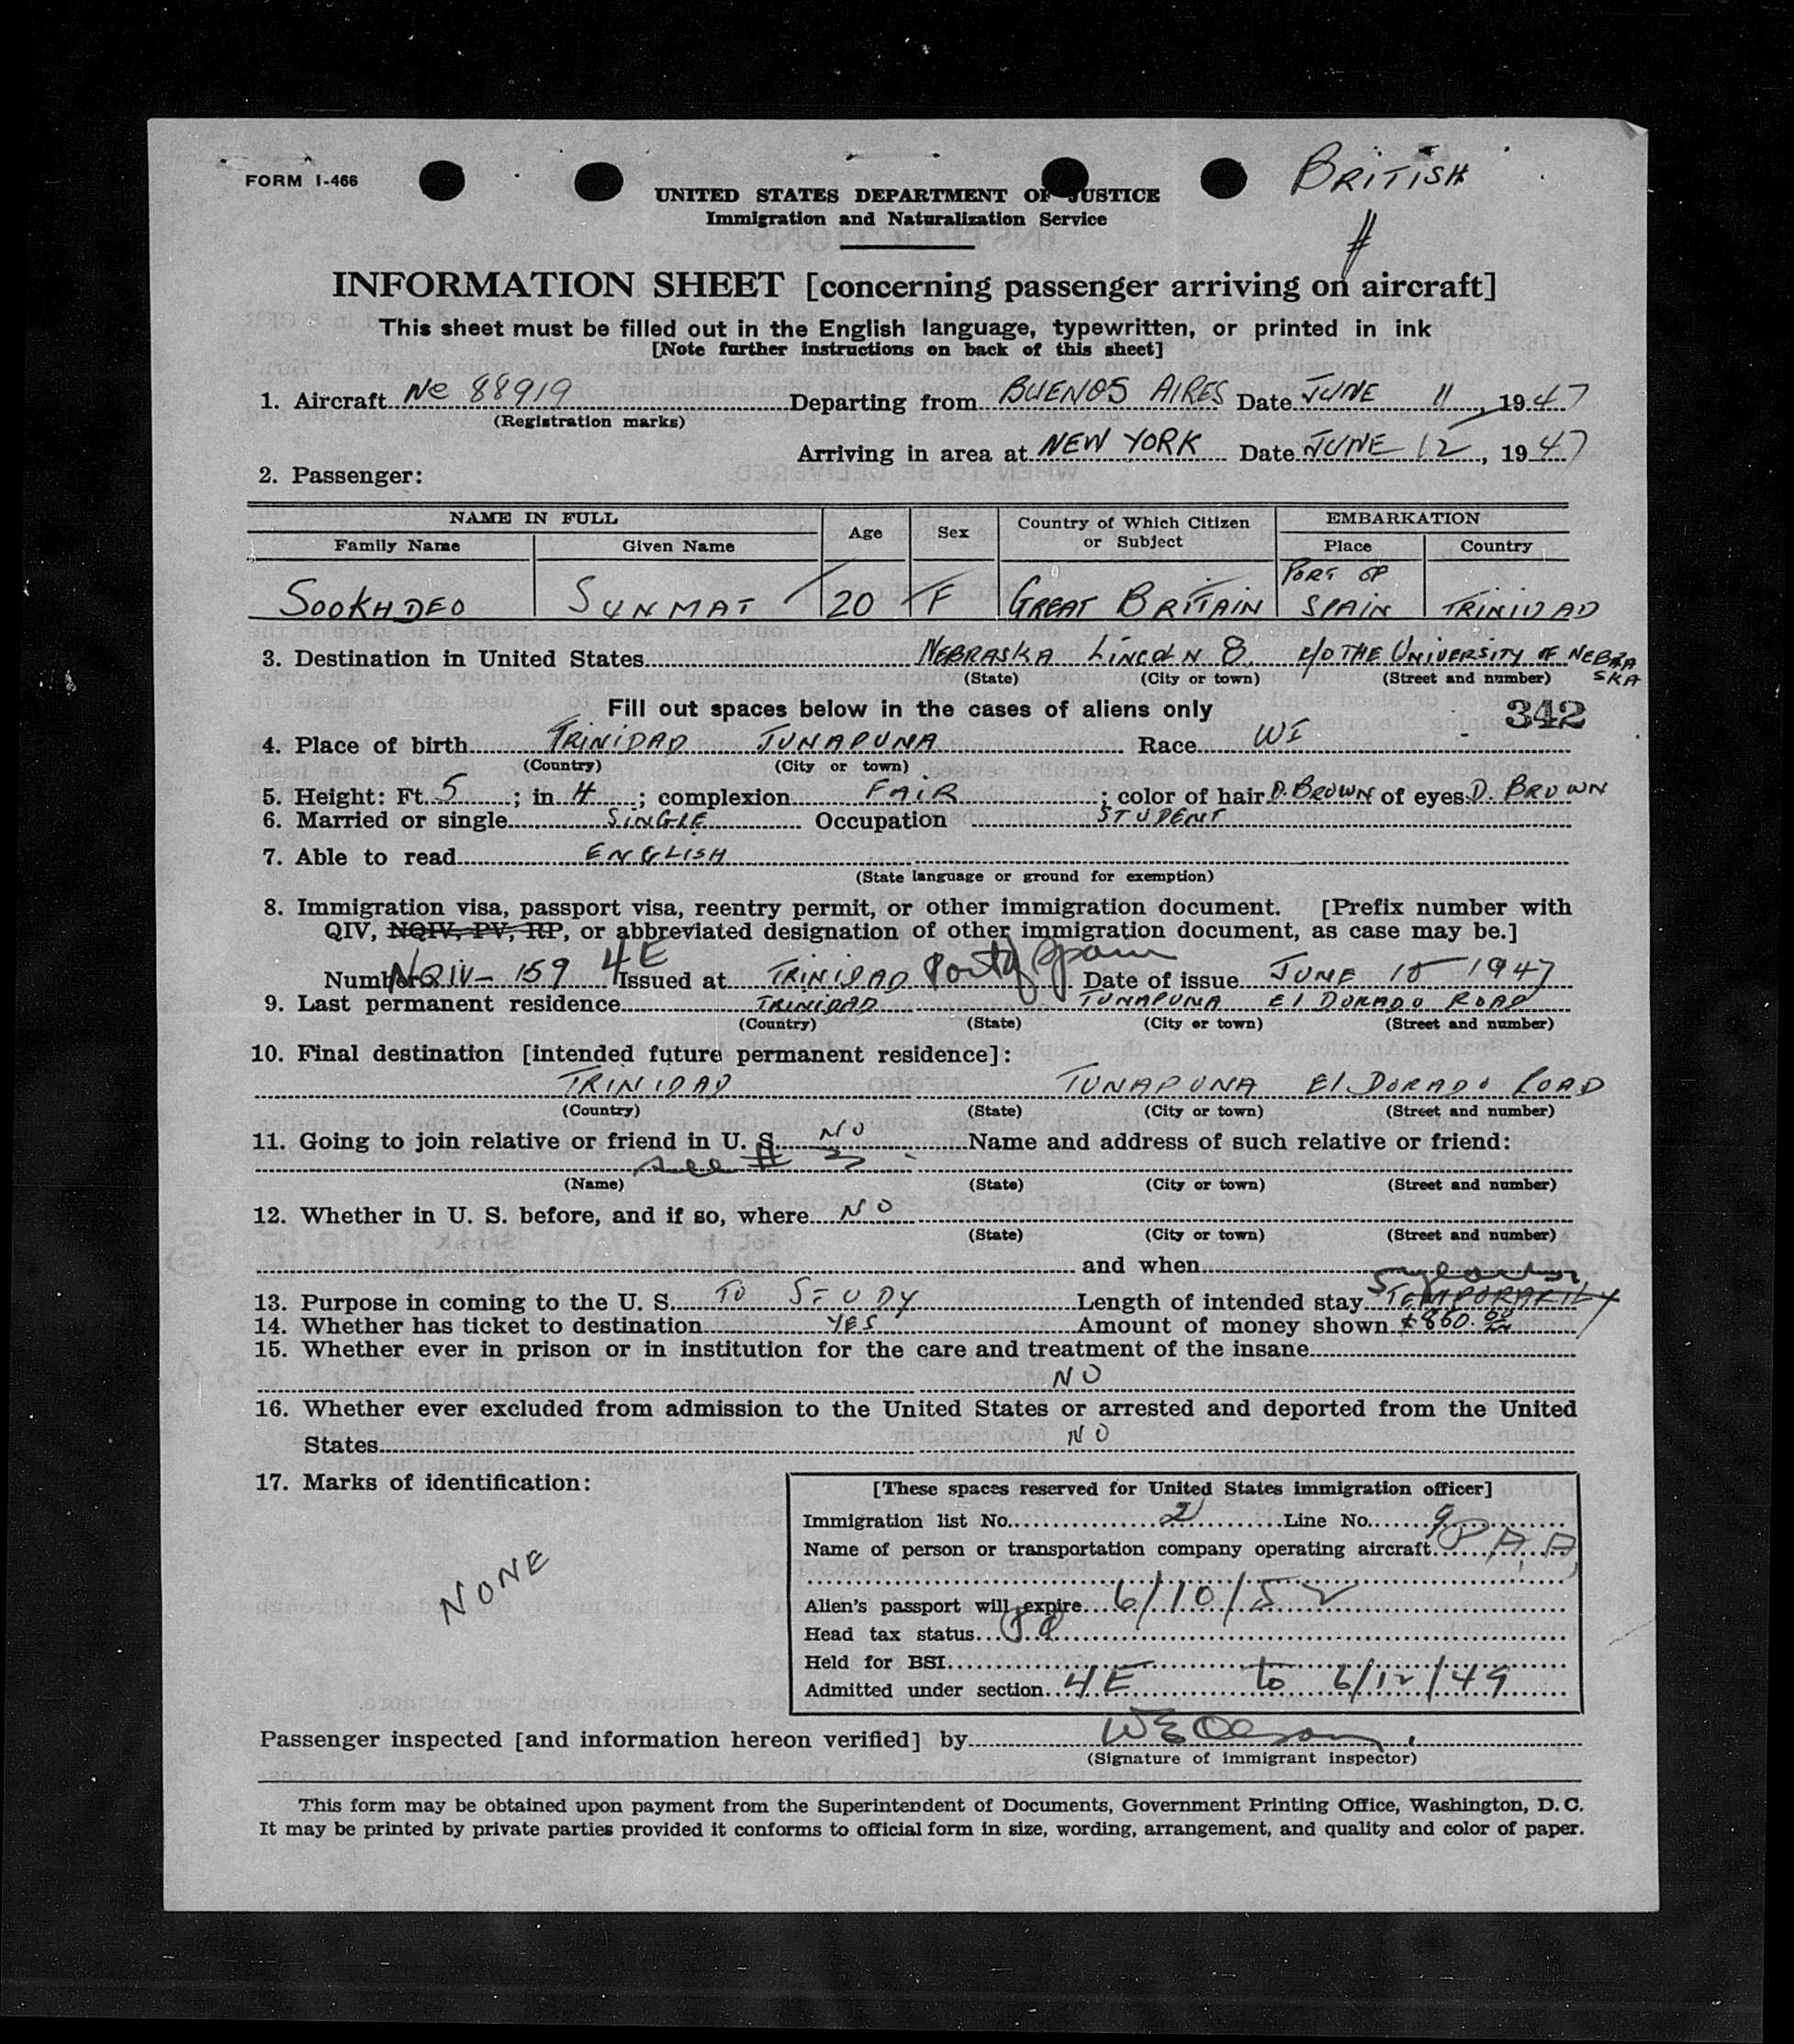 FORM I-466
BRITISH
UNITED STATES DEPARTMENT OF JUSTICE
Immigration and Naturalization Service
#
INFORMATION SHEET [concerning passenger arriving on aircraft]
This sheet must be filled out in the English language, typewritten, or printed in ink
[Note further instructions on back of this sheet]
1. Aircraft Nc 88919 Departing from BUENOS AIRES Date JUNE 11, 1947
(Registration marks)
Arriving in area at NEW YORK Date JUNE 12, 1947
2. Passenger:
NAME IN FULL Age Sex Country of Which Citizen or Subject EMBARKATION
Family Name Given Name Place Country
SOOKHDEO SUNMAT 20 F GREAT BRITAIN PORT OF SPAIN TRINIDAD
3. Destination in United States NEBRASKA LINCOLN 8. c/o THE UNIVERSITY OF NEBRASKA
(State) (City or town) (Street and number)
Fill out spaces below in the cases of aliens only 342
4. Place of birth TRINIDAD TUNAPUNA Race WI
(Country) (City or town)
5. Height: Ft. 5; in 4; complexion FAIR; color of hair D. BROWN of eyes D. BROWN
6. Married or single SINGLE Occupation STUDENT
7. Able to read ENGLISH
(State language or ground for exemption)
8. Immigration visa, passport visa, reentry permit, or other immigration document. [Prefix number with
QIV, NQIV, PV, RP, or abbreviated designation of other immigration document, as case may be.]
Number NQIV-159 4E Issued at TRINIDAD Port of Spain Date of issue JUNE 10 1947
9. Last permanent residence TRINIDAD TUNAPUNA El DORADO ROAD
(Country) (State) (City or town) (Street and number)
10. Final destination [intended future permanent residence]:
TRINIDAD TUNAPUNA El DORADO ROAD
(Country) (State) (City or town) (Street and number)
11. Going to join relative or friend in U. S. NO Name and address of such relative or friend:
see # 3
(Name) (State) (City or town) (Street and number)
12. Whether in U. S. before, and if so, where NO
(State) (City or town) (Street and number)
and when
13. Purpose in coming to the U. S. TO STUDY Length of intended stay TEMPORARILY 5 years
14. Whether has ticket to destination YES Amount of money shown $860.00
15. Whether ever in prison or in institution for the care and treatment of the insane
NO
16. Whether ever excluded from admission to the United States or arrested and deported from the United
States NO
17. Marks of identification:
NONE
[These spaces reserved for United States immigration officer]
Immigration list No. 2 Line No. 9
Name of person or transportation company operating aircraft P A A
Alien's passport will expire 6/10/52
Head tax status
Held for BSI
Admitted under section 4E to 6/12/49
Passenger inspected [and information hereon verified] by W E Olson
(Signature of immigrant inspector)
This form may be obtained upon payment from the Superintendent of Documents, Government Printing Office, Washington, D. C.
It may be printed by private parties provided it conforms to official form in size, wording, arrangement, and quality and color of paper.